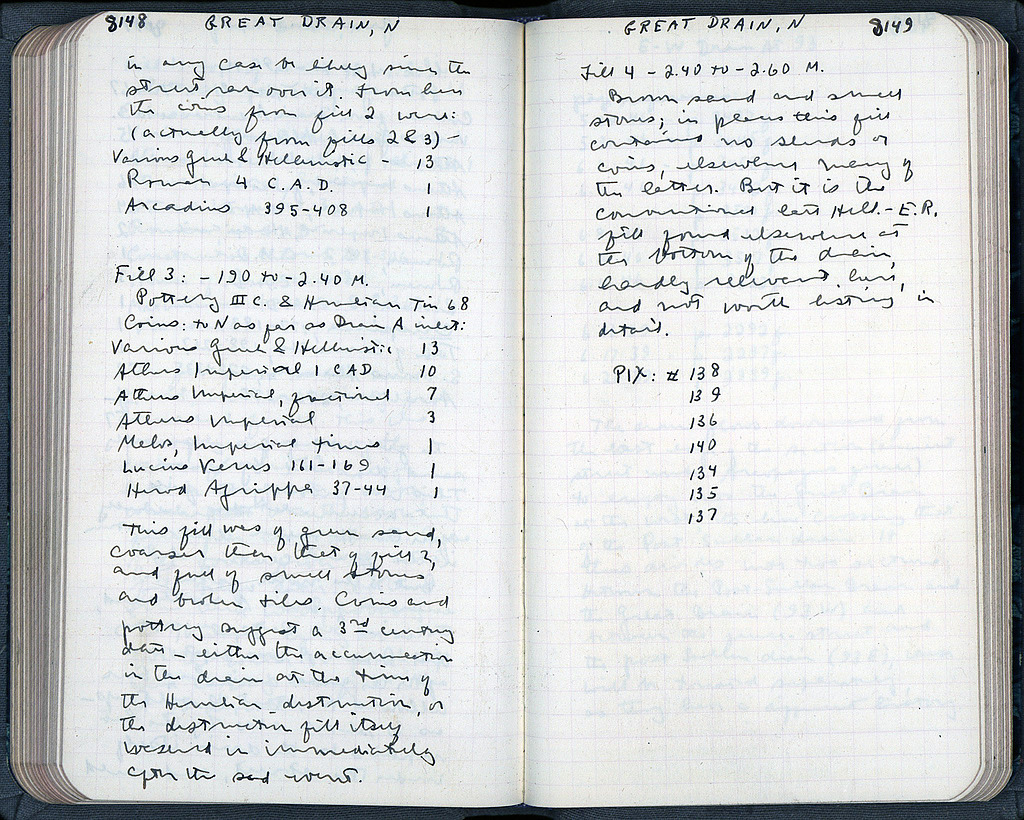 8148 GREAT DRAIN, N
in any case be likely since the
street ran over it. From here
the coins from fill 2 were:
(actually from fills 2 & 3) -
Various Greek & Hellenistic - 13
Roman 4 C. A.D. 1
Arcadius 395-408 1
Fill 3: - 190 to - 2.40 M.
Pottery III C. & Herulian Tin 68
Coins: to N as far as Drain A inlet:
Various Greek & Hellenistic 13
Athens Imperial 1 C AD 10
Athens Imperial, fractional 7
Athens Imperial 3
Melos, Imperial times 1
Lucius Verus 161-169 1
Herod Agrippa 37-44 1
This fill was of green sand,
coarser than that of fill 2,
and full of small stones
and broken tiles. Coins and
pottery suggest a 3rd century
date - either the accumulation
in the drain at the time of
the Herulian destruction, or
the destruction fill itself
washed in immediately
after the sad event.
GREAT DRAIN, N 8149
Fill 4 - 2.40 to - 2.60 M.
Brown sand and small
stones; in places this fill
contains no sherds or
coins, elsewhere many of
the latter. But it is the
conventional late Hell. - E.R.
fill found elsewhere at
the bottom of the drain,
hardly relevant here,
and not worth listing in
detail.
PIX: # 138
139
136
140
134
135
137